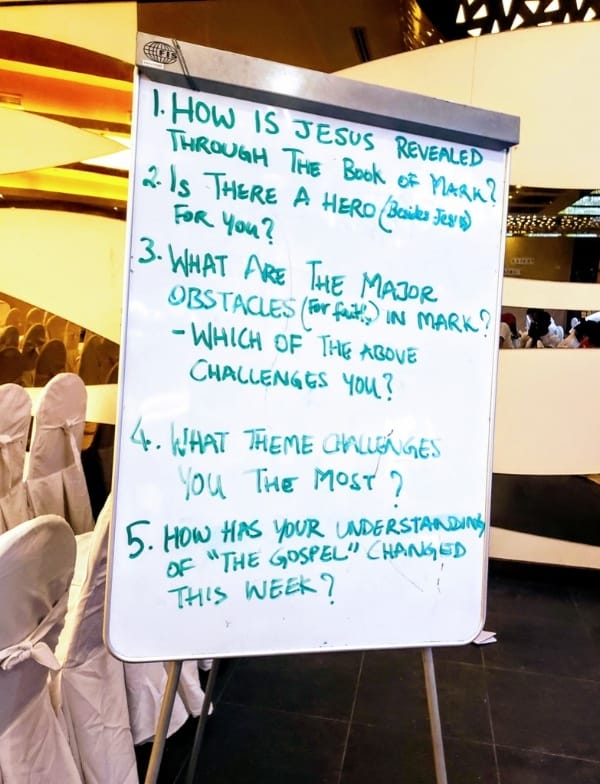 1. HOW IS JESUS REVEALED
THROUGH THE BOOK OF MARK?
2. IS THERE A HERO (Besides Jesus)
FOR YOU?
3. WHAT ARE THE MAJOR
OBSTACLES (For faith) IN MARK?
- WHICH OF THE ABOVE
CHALLENGES YOU?
4. WHAT THEME CHALLENGES
YOU THE MOST?
5. HOW HAS YOUR UNDERSTANDING
OF "THE GOSPEL" CHANGED
THIS WEEK?